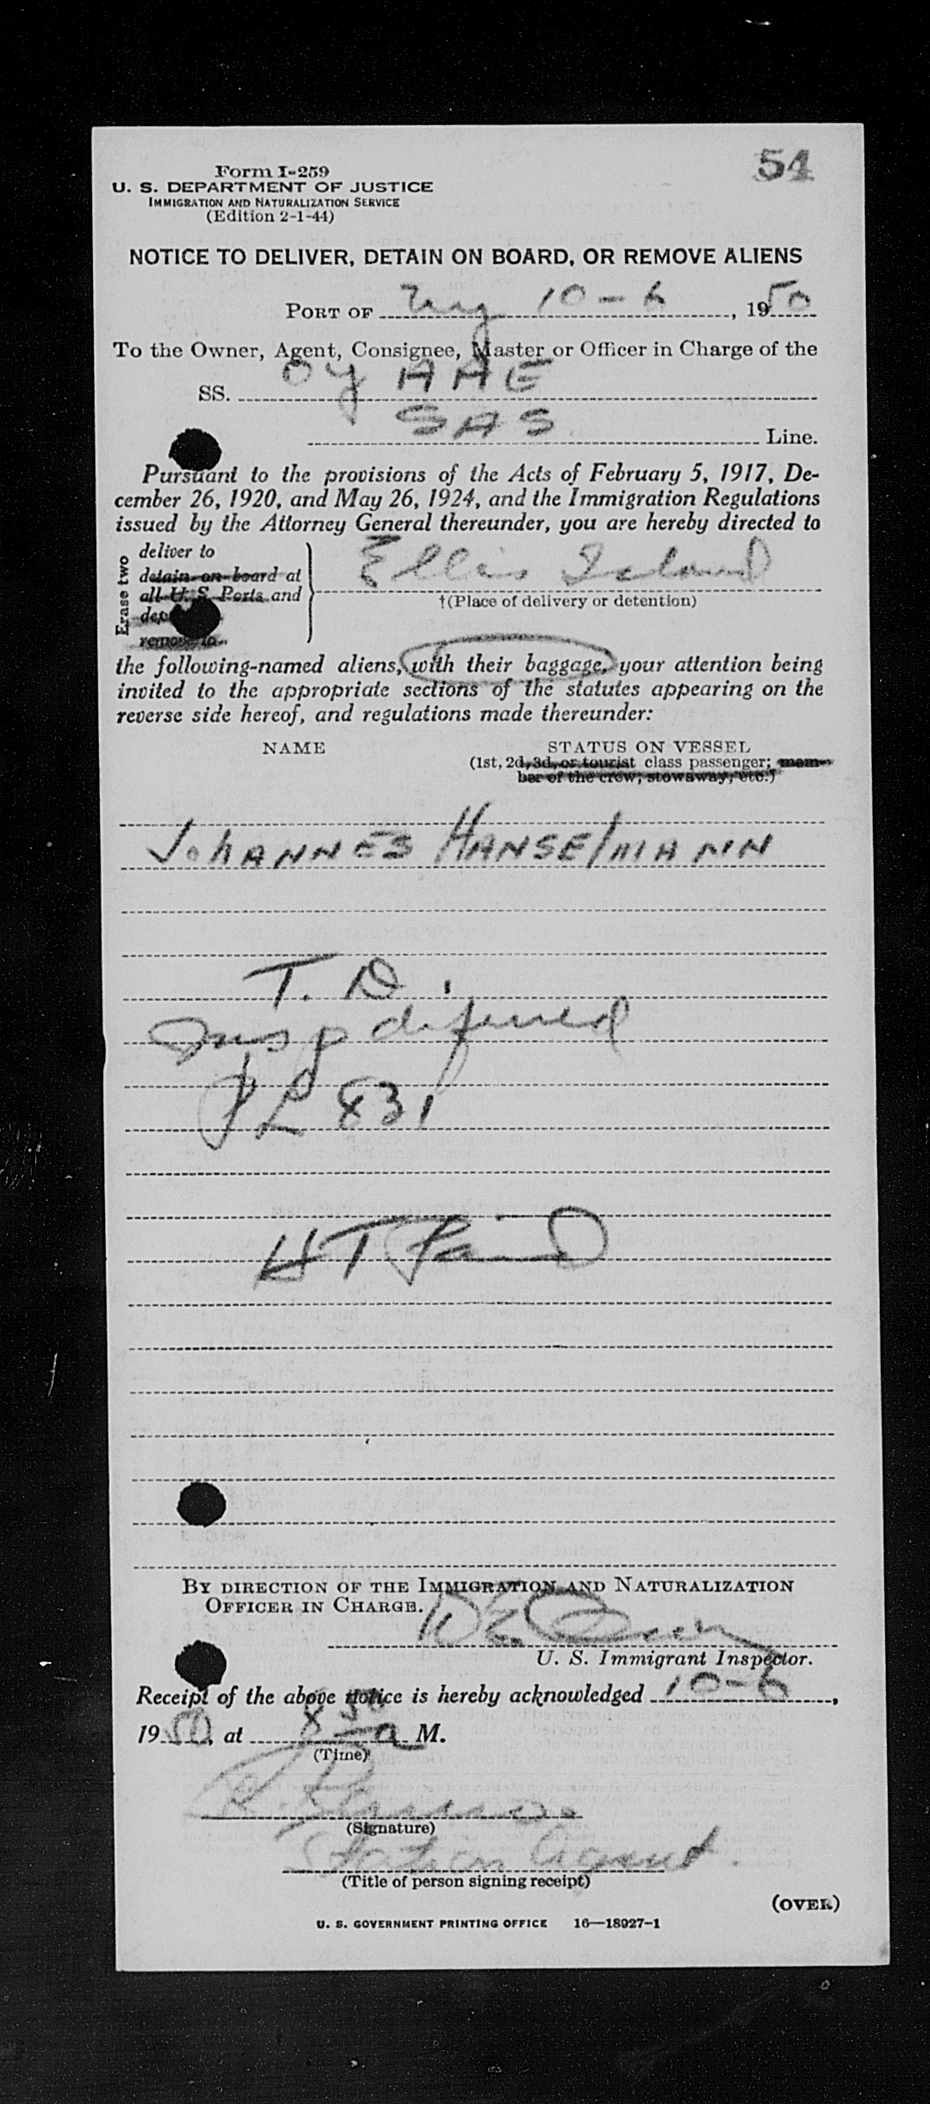 54
Form I-259
U. S. DEPARTMENT OF JUSTICE
IMMIGRATION AND NATURALIZATION SERVICE
(Edition 2-1-44)
NOTICE TO DELIVER, DETAIN ON BOARD, OR REMOVE ALIENS
PORT OF 10-6, 1950
To the Owner, Agent, Consignee, Master or Officer in Charge of the
SS. OY AAE
SAS Line.
Pursuant to the provisions of the Acts of February 5, 1917, De-
cember 26, 1920, and May 26, 1924, and the Immigration Regulations
issued by the Attorney General thereunder, you are hereby directed to
Erase two
deliver to
detain on board at
all U. S. Ports and
remove to
Ellis Island
†(Place of delivery or detention)
the following-named aliens, with their baggage, your attention being
invited to the appropriate sections of the statutes appearing on the
reverse side hereof, and regulations made thereunder:
NAME STATUS ON VESSEL
(1st, 2d, 3d, or tourist class passenger; mem-
ber of the crew; stowaway, etc.)
JOHANNES HANSELMANN
T. D.
Insp deferred
PL 831
HT Paid
BY DIRECTION OF THE IMMIGRATION AND NATURALIZATION
OFFICER IN CHARGE.
U. S. Immigrant Inspector.
Receipt of the above notice is hereby acknowledged 10-6,
1950, at 8 50 a M.
(Time)
(Signature)
Station Agent.
(Title of person signing receipt)
(OVER)
U. S. GOVERNMENT PRINTING OFFICE 16—18927-1